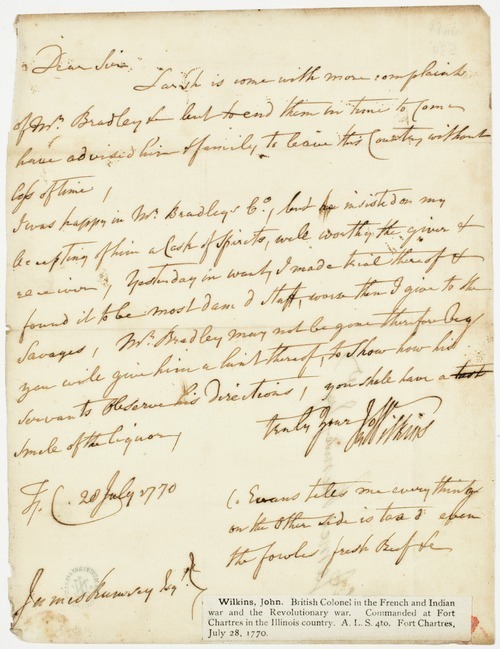 Dear Sir
Larsh is come with more complaints
of Mr. Bradley &c but to end them in time to come
have advised him & family to leave this Country without
loss of time,
I was happy in Mr. Bradleys Co, but he insisted on my
accepting of him a Cask of Spirits, well worthy the giver &
receiver, Yesterday in want, I made trial thereof &
found it to be most dam'd Stuff, worse then I give to the
Savages, Mr. Bradley may not be gone therefore beg
you will give him a hint thereof, to show how his
servants observe his directions, you shall have a
smele of the liquor,
truly your
JnoWilkins
Ft. C. 28 July 1770
C. Evans tells me everything
on the other side is tax'd even
the fowles fresh Beef &c
James Rumsey Esqr.
Wilkins, John. British Colonel in the French and Indian
war and the Revolutionary war. Commanded at Fort
Chartres in the Illinois country. A. L. S. 4to. Fort Chartres,
July 28, 1770.